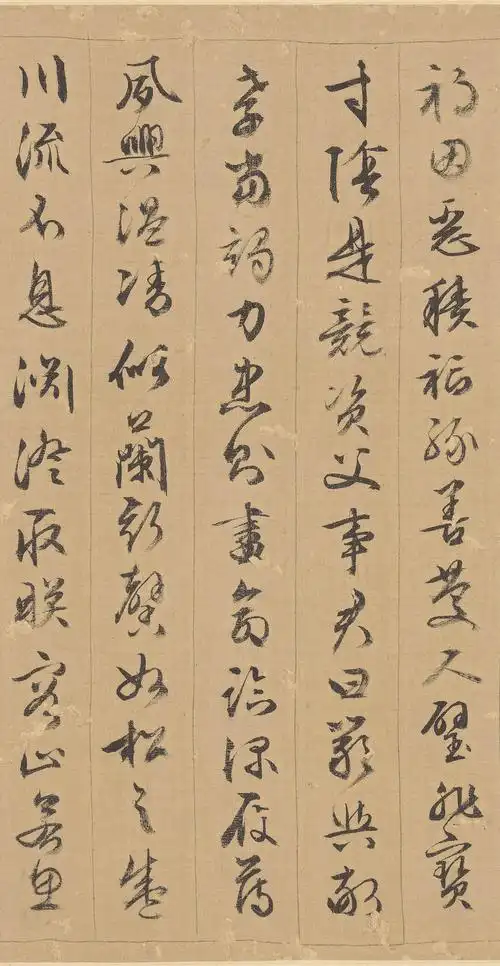 禍因惡積福緣善慶尺璧非寶
寸陰是競資父事君曰嚴與敬
孝當竭力忠則盡命臨深履薄
夙興溫凊似蘭斯馨如松之盛
川流不息淵澄取映容止若思